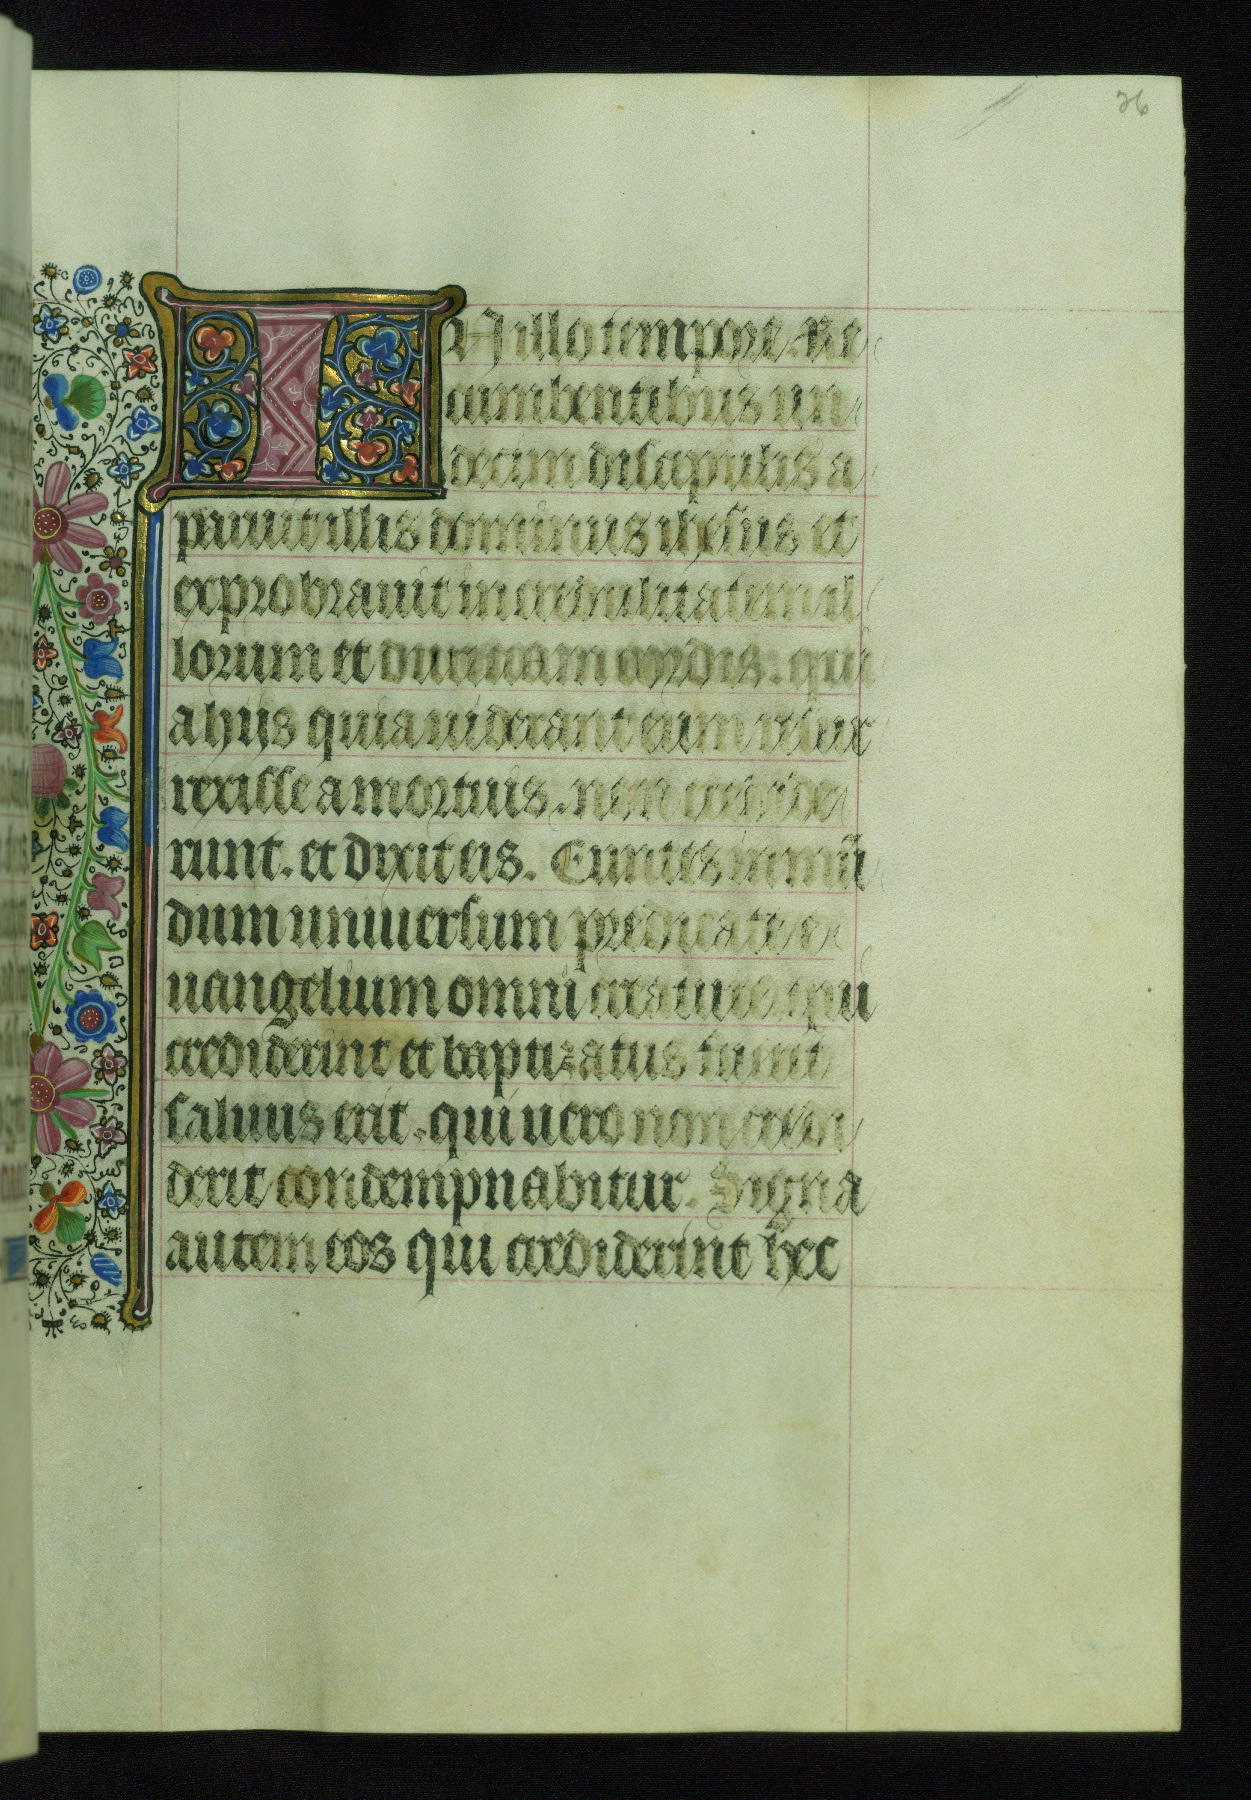 26
IN illo tempore. Re
cumbentibus un
decim discipulis a
paruit illis dominus ihesus et
exprobrauit incredulitatem il
lorum et duriciam cordis. qui
a hijs quia uiderant eum resur
rexisse a mortuis. non credide
runt. et dixit eis. Euntes in mū
dum uniuersum predicate e
uangelium omni creature. qui
crediderint et baptizatus fuerit
saluus erit. qui uero non credi
derit condempnabitur. Signa
autem eos qui crediderint hec